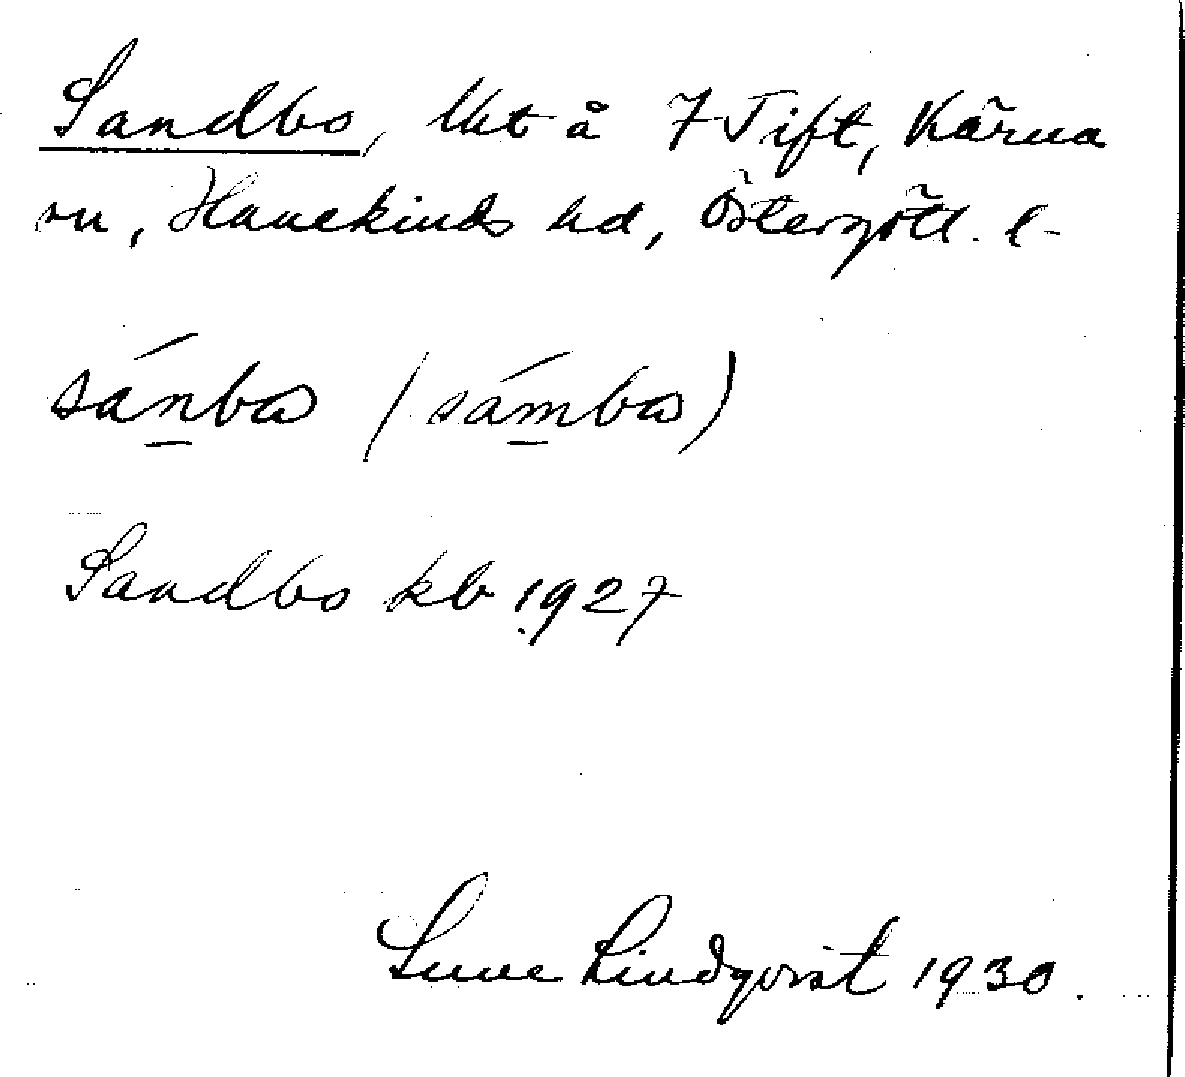 Sandbo, lht å 7 Tift, Kärna
sn, Hanekinds hd, Östergötl. l.
sánbω (sámbω)
Sandbo kb 1927
Sune Lindqvist 1930.